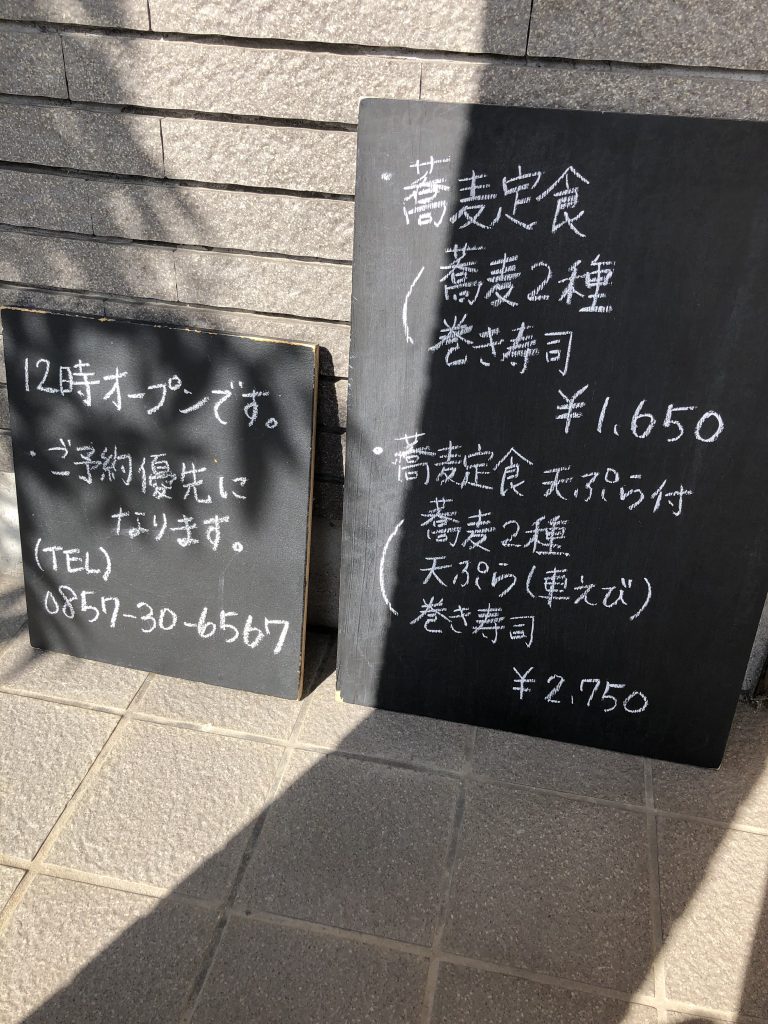 12時オープンです。
・ご予約優先に
なります。
(TEL)
0857-30-6567
・蕎麦定食
(蕎麦2種
巻き寿司
¥1,650
・蕎麦定食 天ぷら付
(蕎麦2種
天ぷら(車えび)
巻き寿司
¥2,750